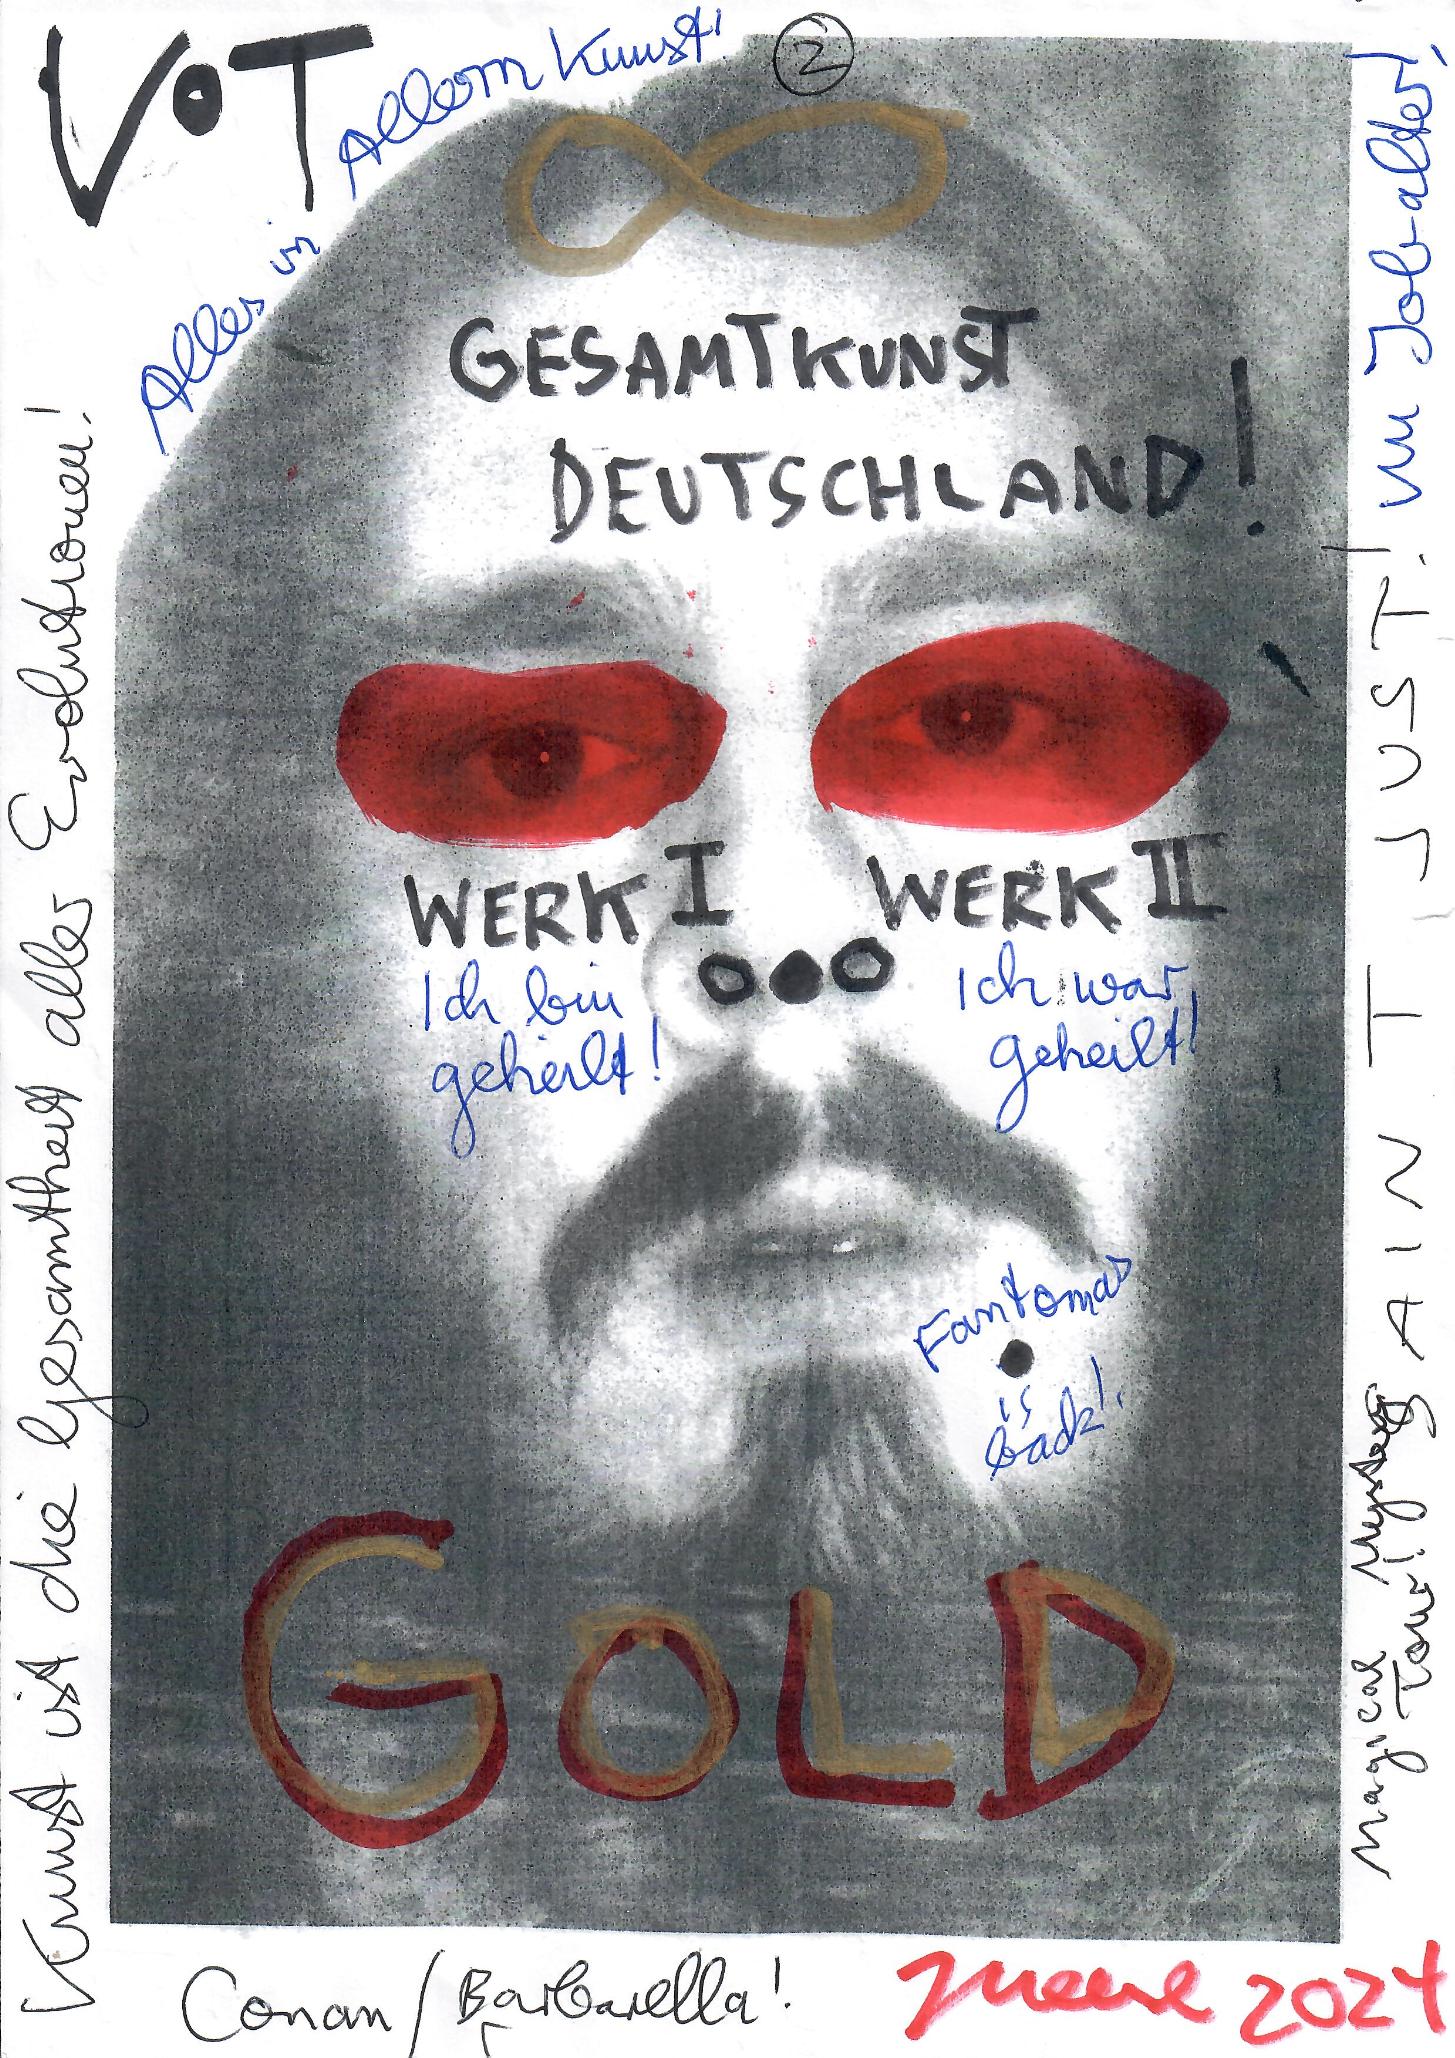 V•T
Alles in Allem Kunst!
2
GESAMTKUNST
DEUTSCHLAND!
WERK I
WERK II
Ich bin
geheilt!
Ich war
geheilt!
Fantomas
is
back!
GOLD
Kunst ist die Gesamtheit aller Evolutionen!
SAINT JUST!
im
Magical Mystery
Tour!
Conan/Barbarella!
Meese 2024